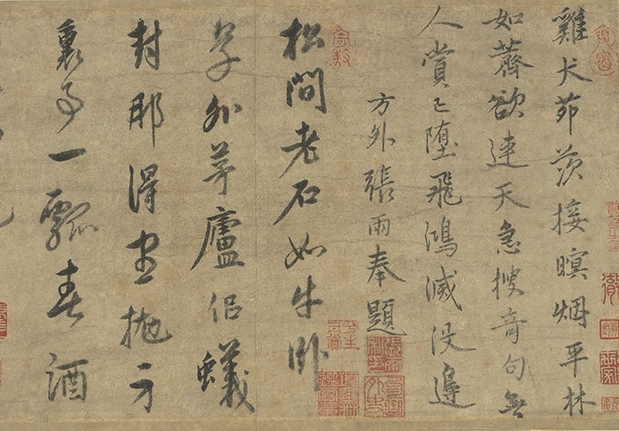 雞犬茆茨接暝烟平林
如薺欲連天急搜奇句無
人賞已墮飛鴻滅沒邊
方外張雨奉題
松間老石如牛卧
外茅廬侶蟻
封那得盡抛方
裏事一瓢春酒